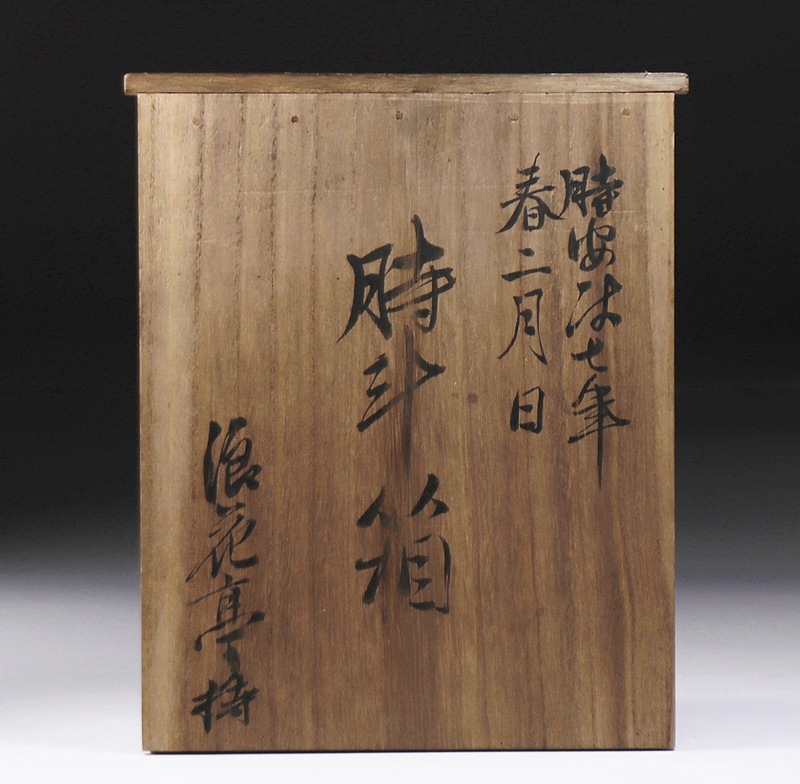 時安政七年
春二月日
時斗箱
浪花亭持